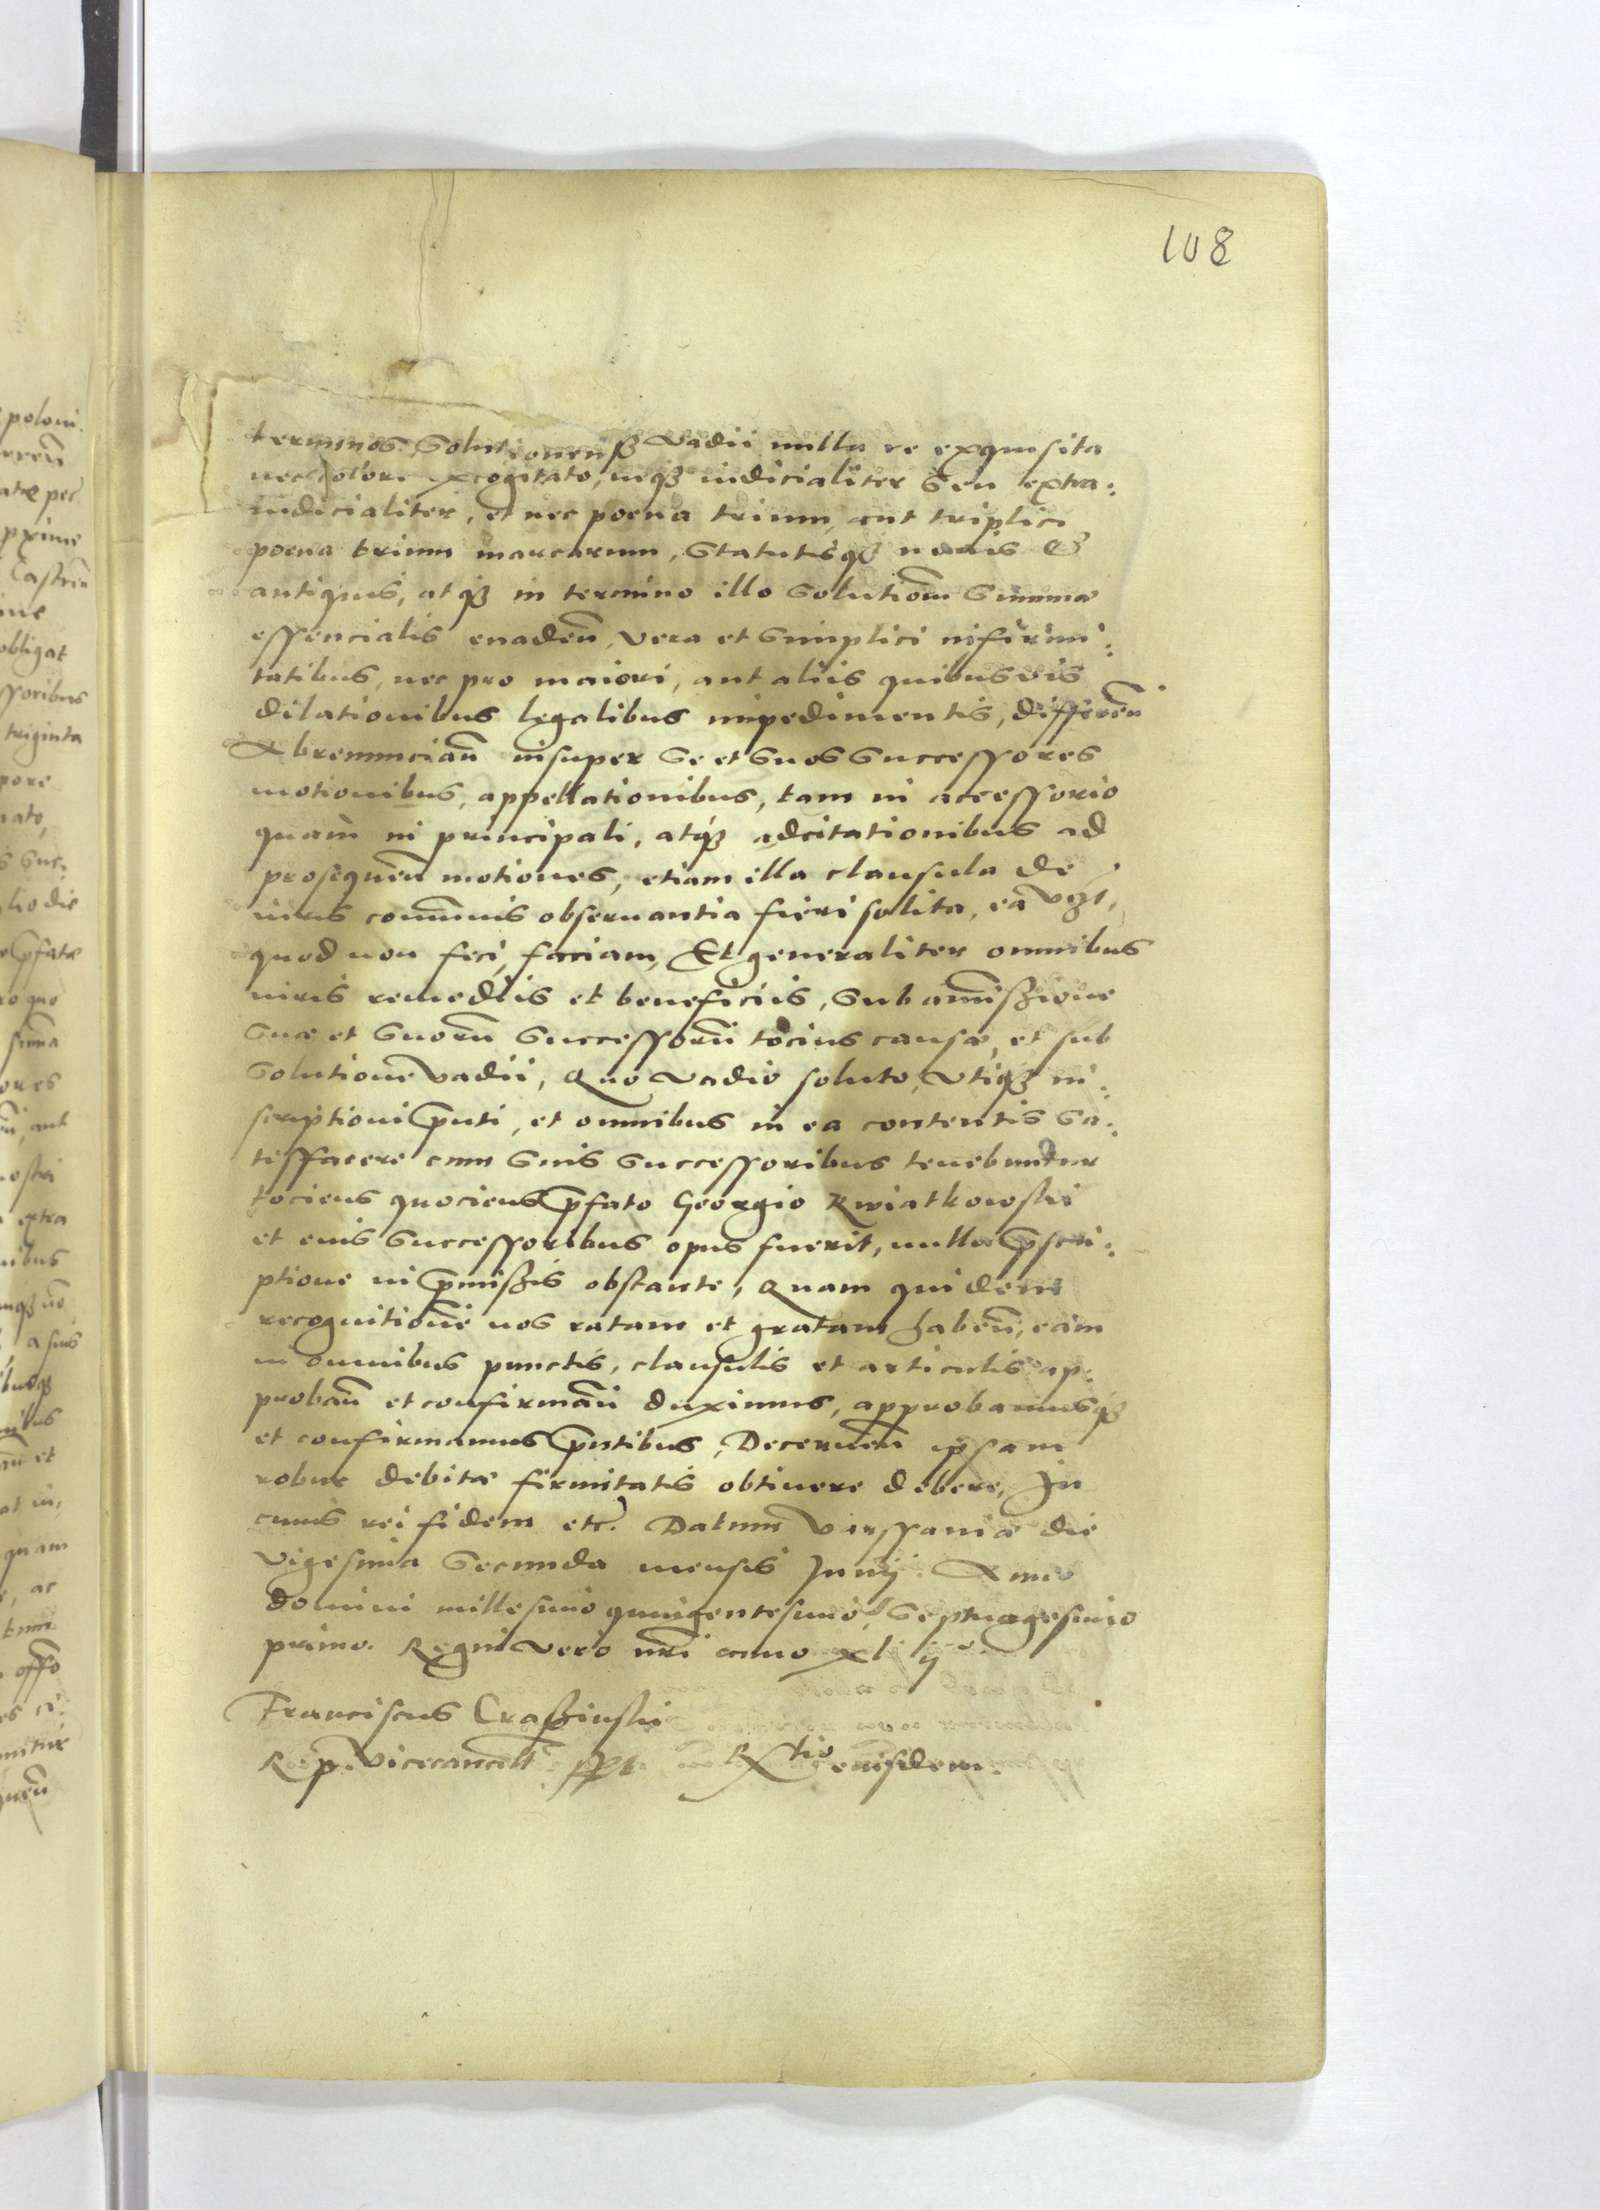 108
terminos solutionemqȝ vadii nulla re exquisita
nec colore excogitato, neqȝ iudicialiter seu extra:
iudicialiter, et nec poena trium, aut triplici
poena trium marcarum, statutisqȝ novis et
antiquis, atqȝ in termino illo solutiōm summæ
essencialis evadeñ, vera et simplici infirmi:
tatibus, nec pro maiori, aut aliis quibusvis
dilationibus legalibus impedimentis, differeñ
Abrenunciañ insuper se et suos successores
motionibus, appellationibus, tam in accessorio
quam in principali, atqȝ adcitationibus ad
prosequeñ motiones, etiam illa clausula de
iuris com̄unis observantia fieri solita, ea vȝt,
quod non feci, faciam, Et generaliter omnibus
iuris remediis et beneficiis, sub amißione
suæ et suorū successorū tocius causæ, et sub
solutione vadii, Quo vadio soluto, utiqȝ in:
scriptioni pn̄ti, et omnibus in ea contentis sa:
tisfacere cum suis successoribus tenebuntur
tociens quociens p̄fato Georgio Kwiatkowski
et eius successoribus opus fuerit, nulla p̄scri:
ptione in p̄mißis obstante, Quam quidem
recognitionē nos ratam et gratam habeñ, eam
in omnibus punctis, clausulis et articulis ap:
probañ et confirmañ duximus, approbamusqȝ
et confirmamus pn̄tibus, Decerneñ ipsam
robur debitæ firmitatis obtinere debere, In
cuius rei fidem etc. Datum Varssaviæ die
vigesima secunda mensis Junij. Anno
domini millesimo quingentesimo, septuagesimo
primo. Regni vero nr̄i anno xlijo.
Franciscus Craßinski
R. p. Vicecancell. sspt. Rtio eiusdem.
poloni.
pxime
Castreñ
obligat
ssoribus
triginta
pore
nato,
lio die
p̄fatæ
quo
sum̄a
ores
aut
nostri
extra
et
quam
ac